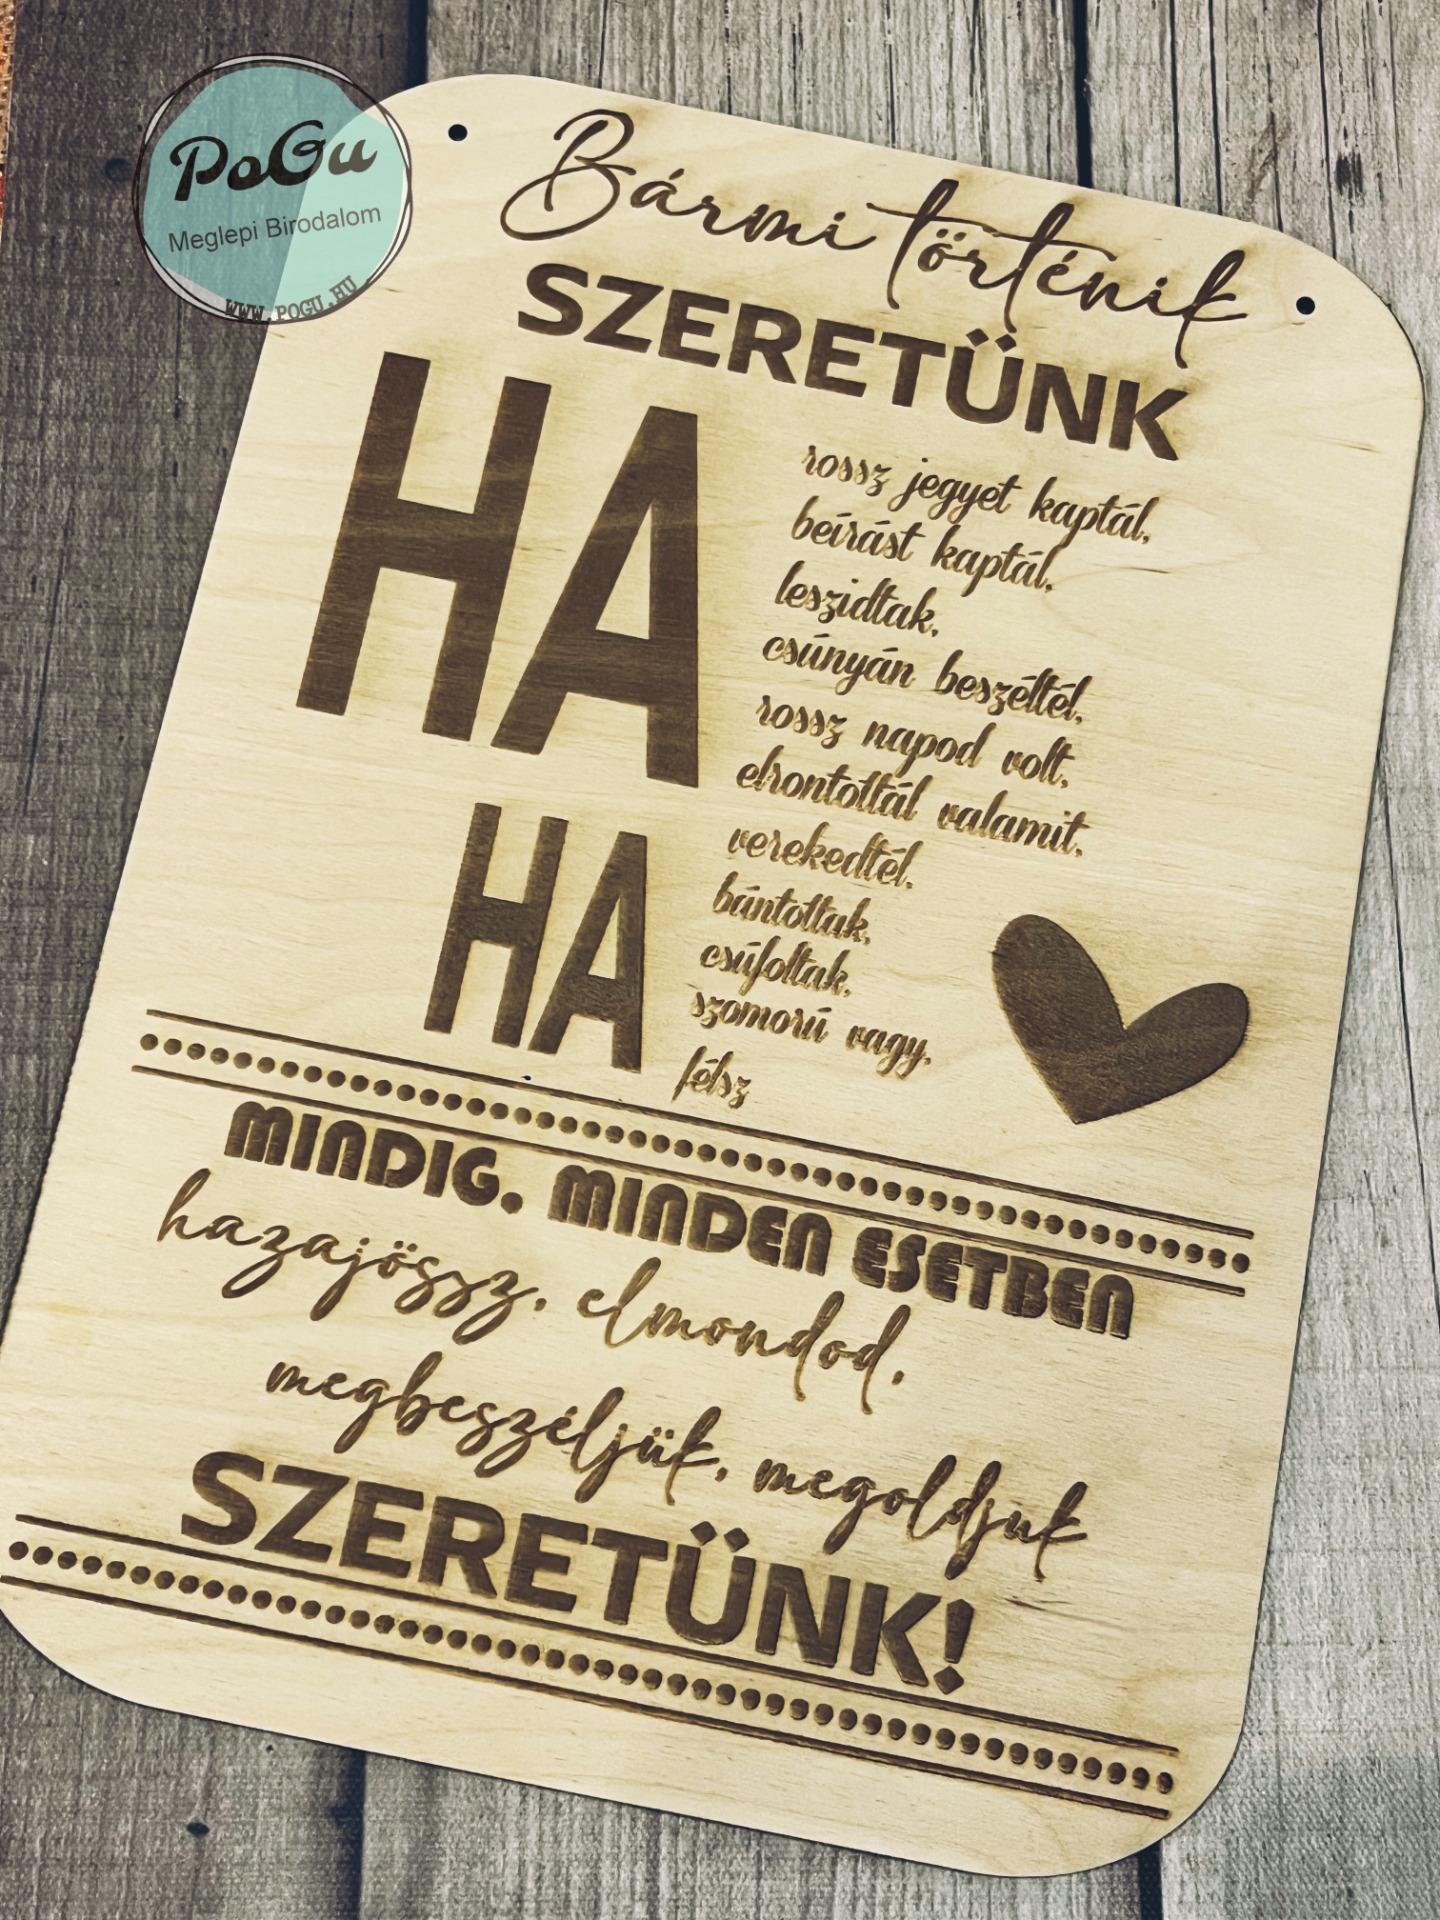 PoGu
Meglepi Birodalom
WWW.POGU.HU
Bármi történik
SZERETÜNK
HA
rossz jegyet kaptál,
beírást kaptál,
leszidtak,
csúnyán beszéltél,
rossz napod volt,
elrontottál valamit,
HA
verekedtél,
bántottak,
csúfoltak,
szomorú vagy,
félsz
MINDIG, MINDEN ESETBEN
hazajössz, elmondod,
megbeszéljük, megoldjuk
SZERETÜNK!